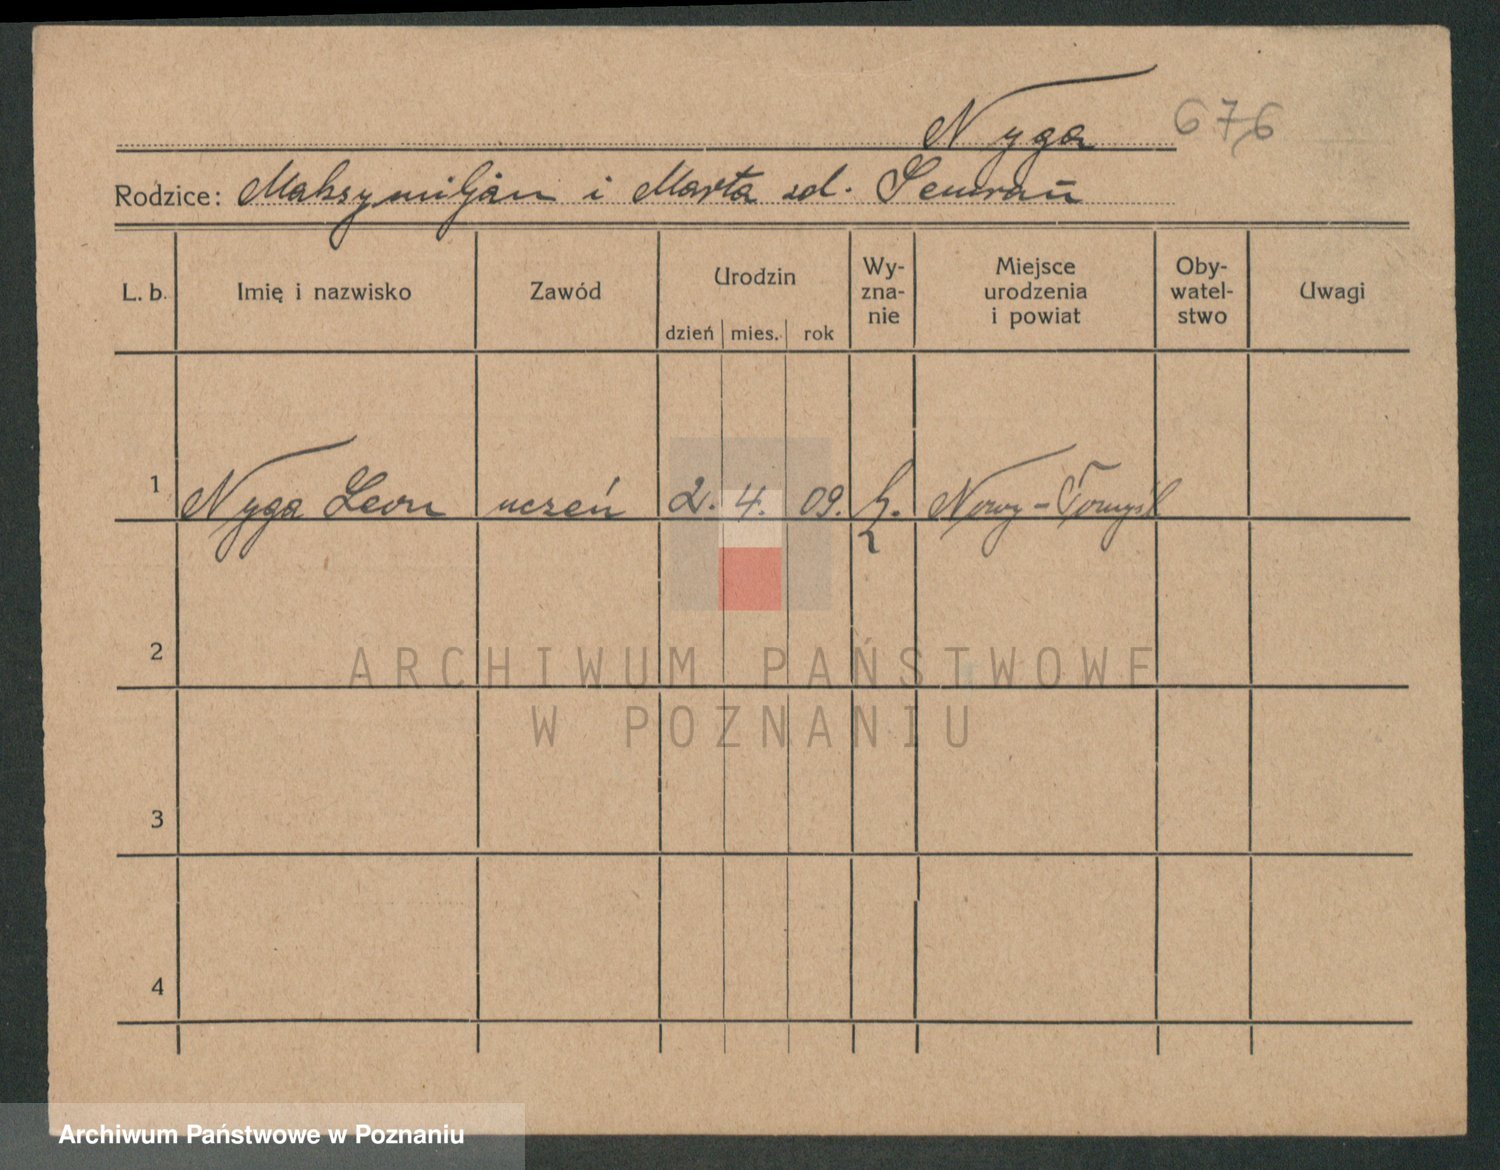 Nyga 676
Rodzice: Maksymiljan i Marta zd. Semrau
L. b. Imię i nazwisko Zawód Urodzin dzień mies. rok Wy-zna-nie Miejsce urodzenia i powiat Oby-watel-stwo Uwagi
1 Nyga Leon uczeń 2. 4. 09. k. Nowy-Tomyśl
2
ARCHIWUM PAŃSTWOWE
W POZNANIU
3
4
Archiwum Państwowe w Poznaniu